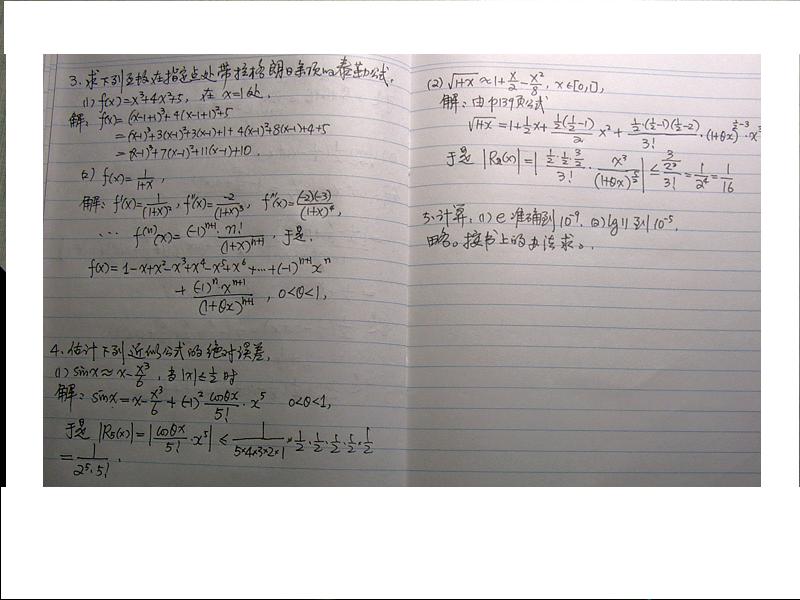 3. 求下列函数在指定点处带拉格朗日余项的泰勒公式.
(1) f(x)=x³+4x²+5, 在 x=1处.
解: f(x)=(x-1+1)³+4(x-1+1)²+5
=(x-1)³+3(x-1)²+3(x-1)+1+4(x-1)²+8(x-1)+4+5
=(x-1)³+7(x-1)²+11(x-1)+10.
(2) f(x)=1/(1+x),
解: f'(x)=1/(1+x)², f''(x)=-2/(1+x)³, f'''(x)=(-2)(-3)/(1+x)⁴,
... f⁽ⁿ⁾(x)=(-1)ⁿ⁺¹·n!/(1+x)ⁿ⁺¹, 于是:
f(x)=1-x+x²-x³+x⁴-x⁵+x⁶+...+(-1)ⁿ⁺¹xⁿ
+(-1)ⁿ·xⁿ⁺¹/(1+θx)ⁿ⁺¹, 0<θ<1,
4. 估计下列近似公式的绝对误差,
(1) sinx≈x-x³/6, 当|x|≤1/2时
解: sinx=x-x³/6+(-1)²cosθx/5!·x⁵ 0<θ<1,
于是 |R₅(x)|=|cosθx/5!·x⁵|≤1/(5×4×3×2×1)×1/2·1/2·1/2·1/2·1/2
=1/(2⁵·5!).
(2) √(1+x)≈1+x/2-x²/8, x∈[0,1],
解: 由P139页公式
√(1+x)=1+1/2x+(1/2(1/2-1)/2)x²+(1/2·(1/2-1)(1/2-2)/3!)·(1+θx)^(1/2-3)·x³
于是 |R₂(x)|=|(1/2·1/2·3/2)/3!·x³/(1+θx)^(5/2)|≤(3/2³)/3!=1/2⁴=1/16
5.计算: (1) e准确到10⁻⁹. (2) lg11到10⁻⁵.
略。按书上的办法求。